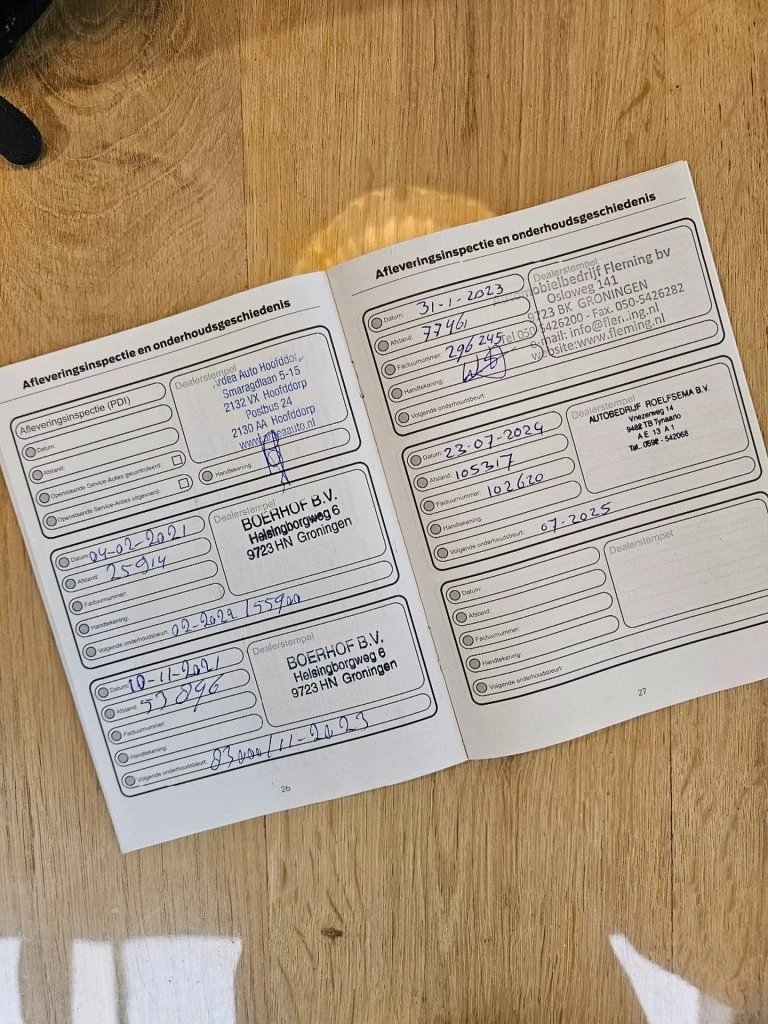 Afleveringsinspectie en onderhoudsgeschiedenis
Afleveringsinspectie (PDI)
Datum:
Afstand:
Openstaande Service-Acties gecontroleerd:
Openstaande Service-Acties uitgevoerd:
Dealerstempel
Ardea Auto Hoofddorp
Smaragdlaan 5-15
2132 VX Hoofddorp
Postbus 24
2130 AA Hoofddorp
www.ardeaauto.nl
Handtekening:
Datum: 04-02-2021
Afstand: 25914
Factuurnummer:
Handtekening:
Volgende onderhoudsbeurt: 02-2022 / 55900
Dealerstempel
BOERHOF B.V.
Helsingborgweg 6
9723 HN Groningen
Datum: 10-11-2021
Afstand: 53896
Factuurnummer:
Handtekening:
Volgende onderhoudsbeurt: 83000/11-2023
Dealerstempel
BOERHOF B.V.
Helsingborgweg 6
9723 HN Groningen
26
Afleveringsinspectie en onderhoudsgeschiedenis
Datum: 31-1-2023
Afstand: 77461
Factuurnummer: 296245
Handtekening:
Volgende onderhoudsbeurt:
Dealerstempel
Automobielbedrijf Fleming bv
Osloweg 141
9723 BK GRONINGEN
Tel. 050-5426200 - Fax. 050-5426282
E-mail: info@fleming.nl
website:www.fleming.nl
Datum: 23-07-2024
Afstand: 105317
Factuurnummer: 102620
Handtekening:
Volgende onderhoudsbeurt: 07-2025
Dealerstempel
AUTOBEDRIJF ROELFSEMA B.V.
Vriezerweg 14
9482 TB Tynaarlo
A E 13 A 1
Tel.: 0592 - 542068
Datum:
Afstand:
Factuurnummer:
Handtekening:
Volgende onderhoudsbeurt:
Dealerstempel
27